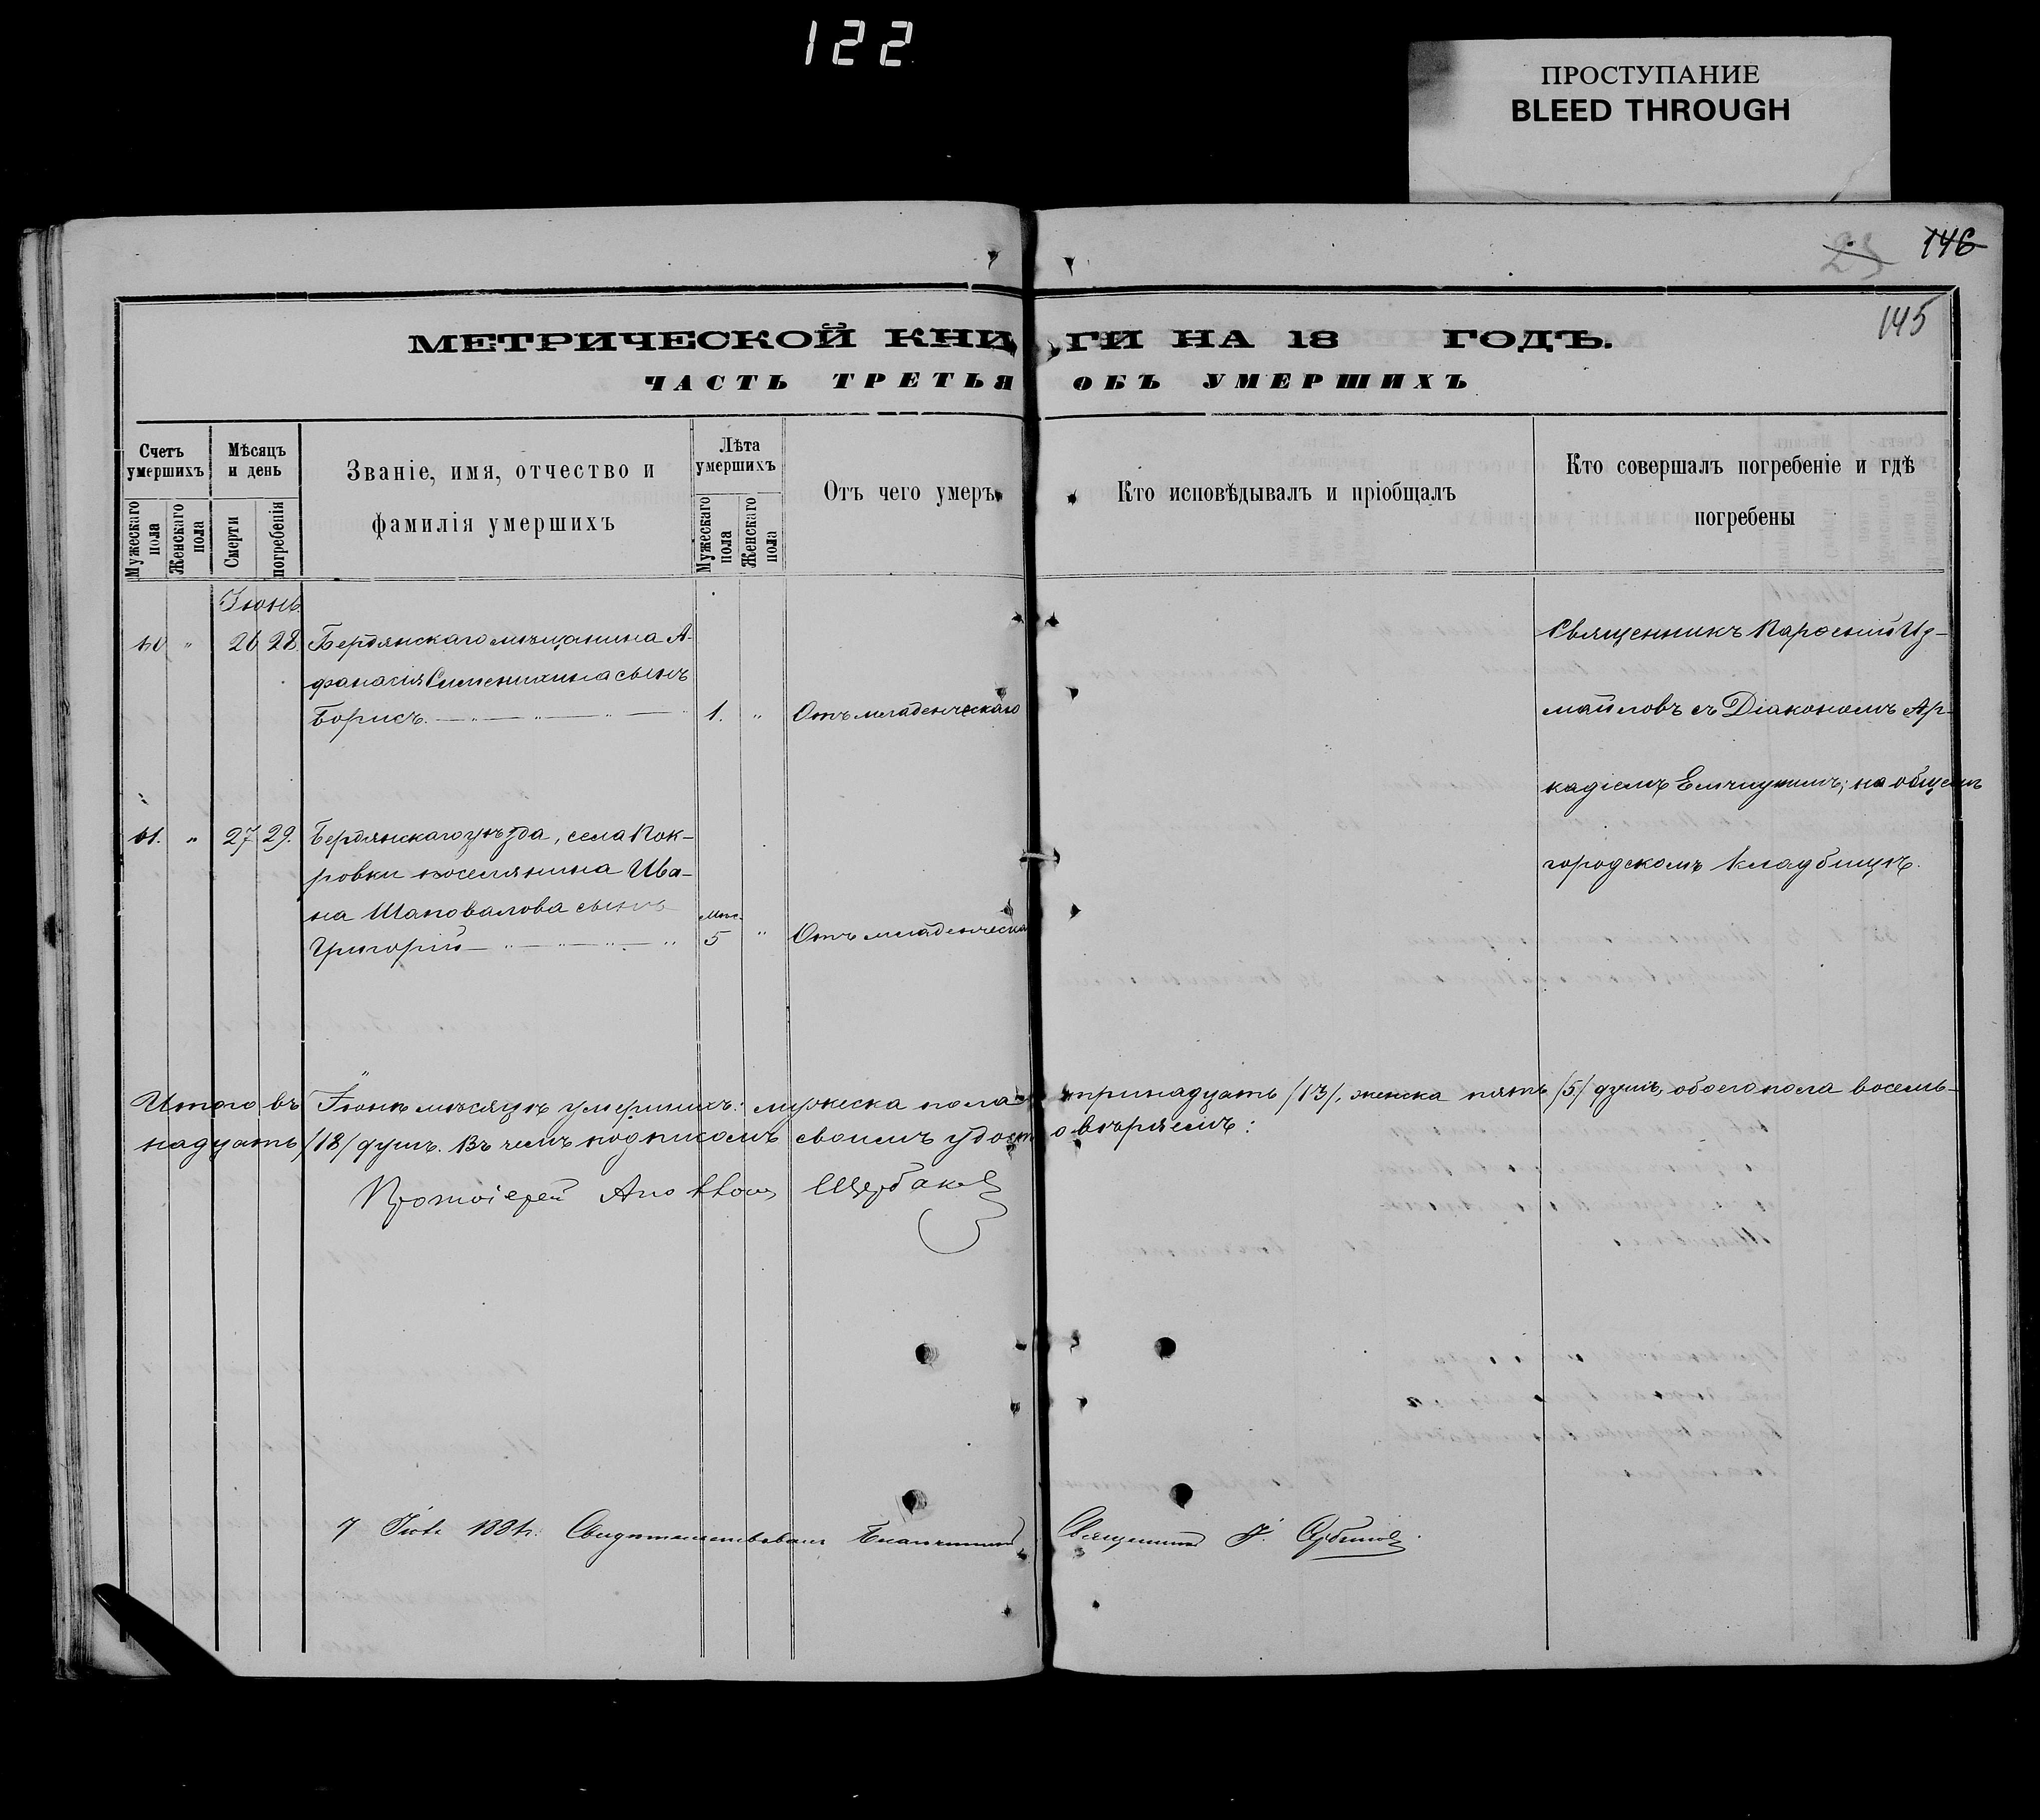 122
ПРОСТУПАНИЕ
BLEED THROUGH
146
23
145
МЕТРИЧЕСКОЙ КНИГИ НА 18 ГОДЪ.
ЧАСТЬ ТРЕТЬЯ ОБЪ УМЕРШИХЪ
Счетъ умершихъ
Мужескаго пола
Женскаго пола
Мѣсяцъ и день
Смерти
погребенія
Званіе, имя, отчество и
фамилія умершихъ
Лѣта умершихъ
Мужескаго пола
Женскаго пола
Отъ чего умеръ
Кто исповѣдывалъ и пріобщалъ
Кто совершалъ погребеніе и гдѣ
погребены
Іюнь
60 " 26 28. Бердянскаго мѣщанина А-
фанасія сынъ
Борисъ 1. " Отъ младенческаго
Священникъ Из-
майловъ съ Діакономъ Ар-
кадіемъ на общемъ
городскомъ кладбищѣ.
61. " 27 29. Бердянскаго уѣзда, села Пок-
ровки поселянина Ива-
на Шаповалова сынъ
Григорій Мѣс. 5 " Отъ младенческа
Итого въ Іюнѣ мѣсяцѣ умершихъ: мужеска пола тринадцать /13/, женска пять /5/ душъ, обоего пола восемь-
надцать /18/ душъ. Въ чемъ подписомъ своимъ удостовѣряемъ:
Протоіерей Щербаковъ
7 Свидѣтельствовалъ Благочинный Священникъ